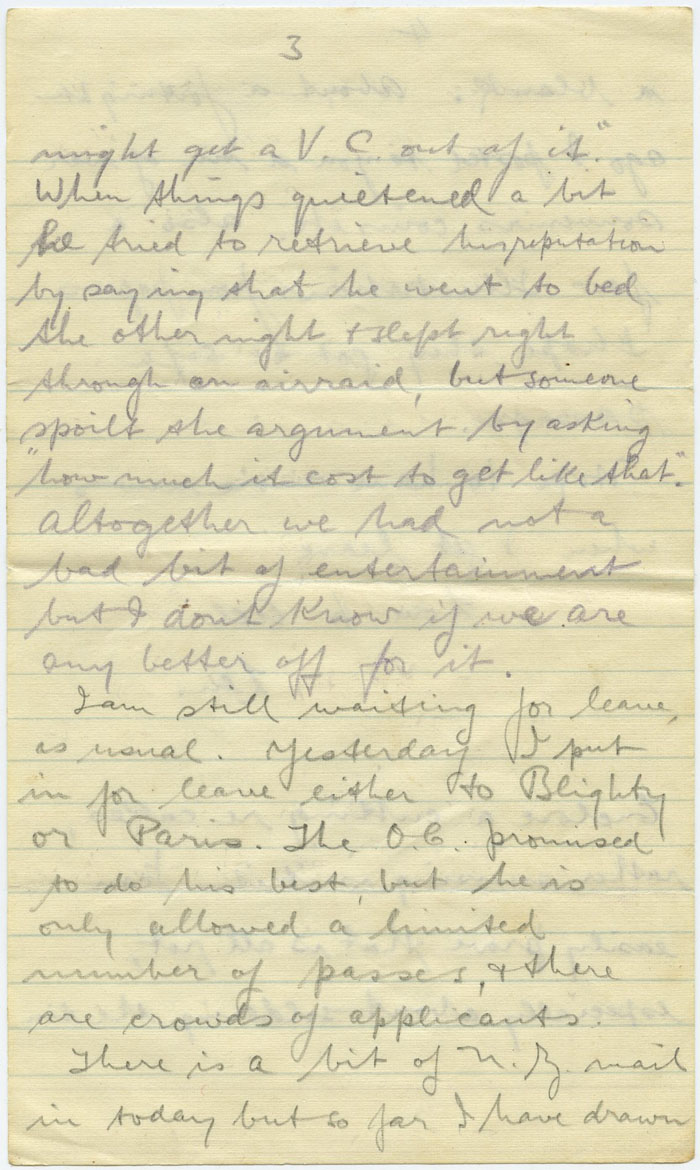 3
might get a V. C. out of it."
When things quietened a bit
he tried to retrieve his reputation
by saying that he went to bed
the other night & slept right
through an airraid, but someone
spoilt the argument by asking
"how much it cost to get like that".
Altogether we had not a
bad bit of entertainment
but I don't know if we are
any better off for it.
I am still waiting for leave,
as usual. Yesterday I put
in for leave either to Blighty
or Paris. The O.C. promised
to do his best, but he is
only allowed a limited
number of passes, & there
are crowds of applicants.
There is a bit of N. Z. mail
in today but so far I have drawn